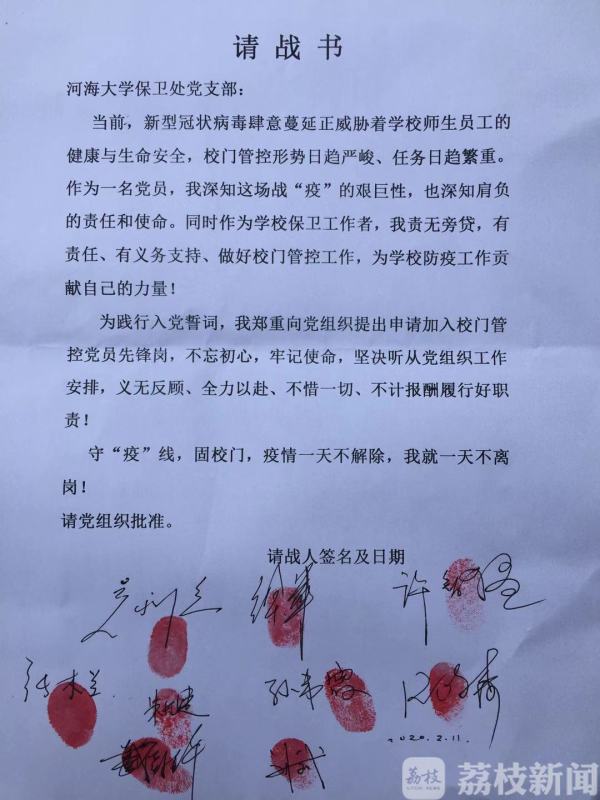 请战书
河海大学保卫处党支部：
当前，新型冠状病毒肆意蔓延正威胁着学校师生员工的
健康与生命安全，校门管控形势日趋严峻、任务日趋繁重。
作为一名党员，我深知这场战“疫”的艰巨性，也深知肩负
的责任和使命。同时作为学校保卫工作者，我责无旁贷，有
责任、有义务支持、做好校门管控工作，为学校防疫工作贡
献自己的力量！
为践行入党誓词，我郑重向党组织提出申请加入校门管
控党员先锋岗，不忘初心，牢记使命，坚决听从党组织工作
安排，义无反顾、全力以赴、不惜一切、不计报酬履行好职
责！
守“疫”线，固校门，疫情一天不解除，我就一天不离
岗！
请党组织批准。
请战人签名及日期
2020.2.11.
荔枝 荔枝新闻